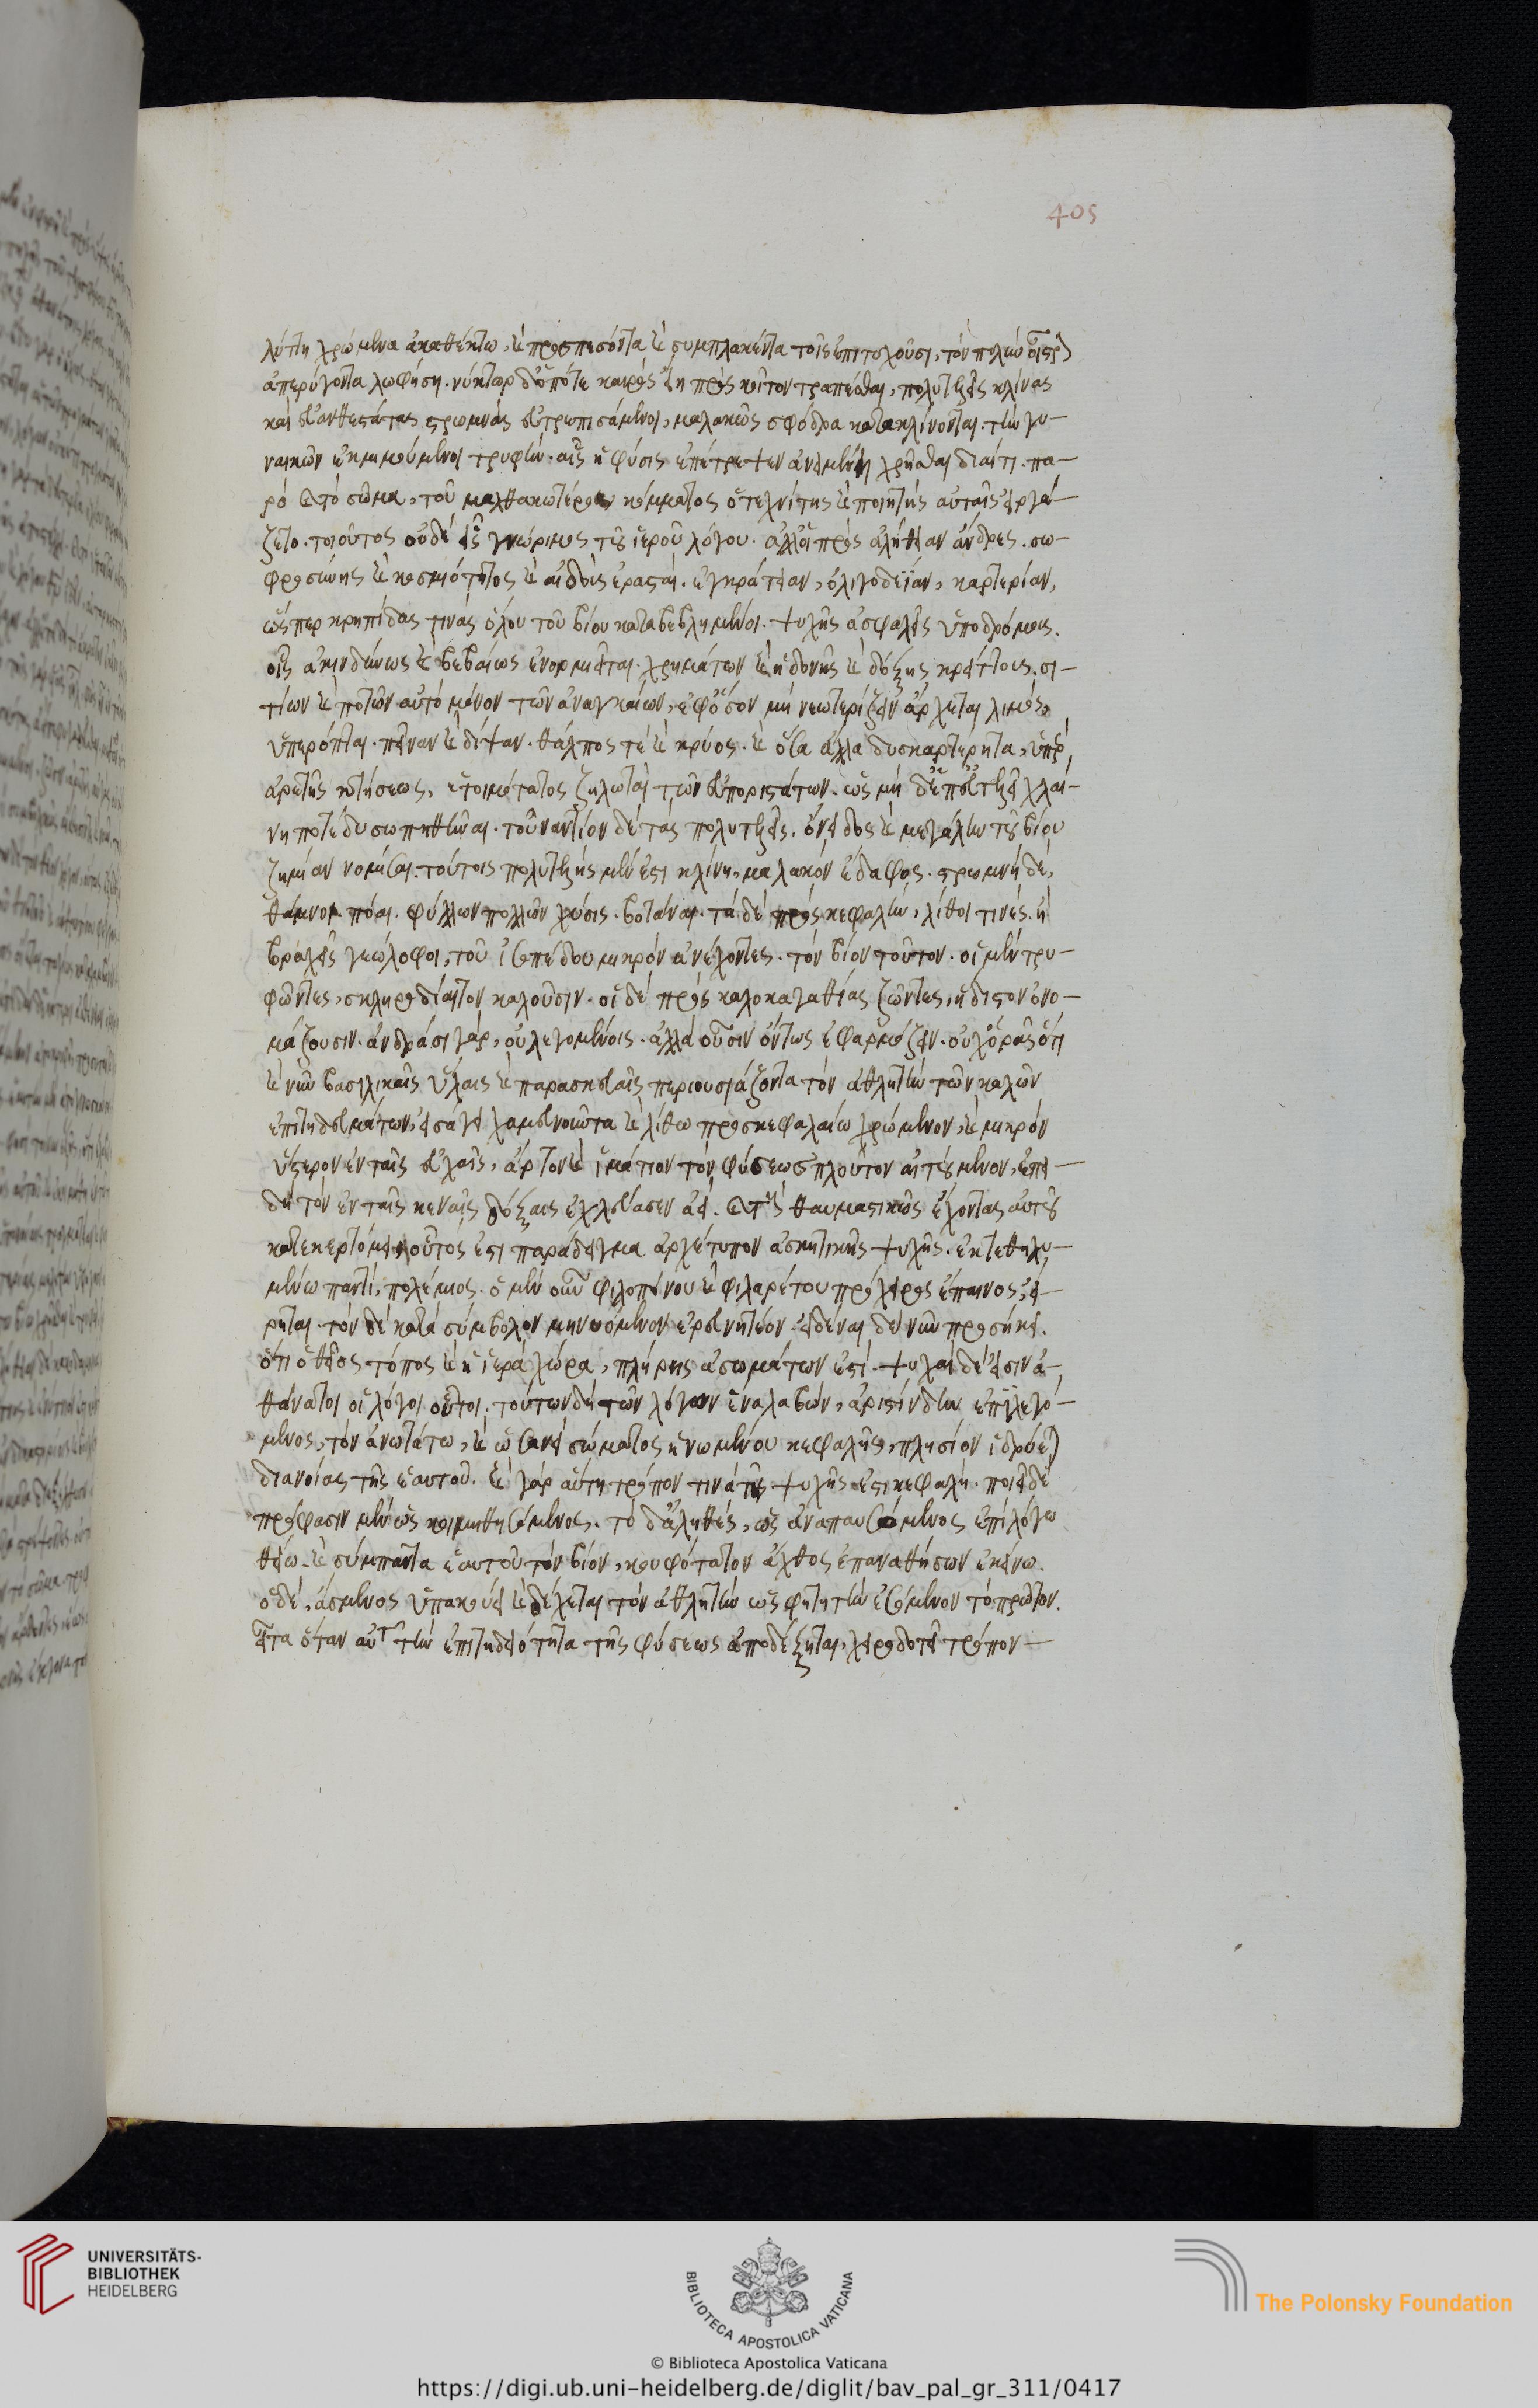 405
λύττη χρώμενα ἀκαθέκτω, καὶ προσπεσόντα καὶ συμπλακέντα τοῖς ἐπιτυχοῦσι, τὸν πολὺν οἶστρον
ἀπερύγοντα λωφήση. νύκτωρ δ' ὁπότε καιρὸς εἴη πρὸς κοῖτον τραπέσθαι, πολυτελεῖς κλίνας
καὶ εὐανθεστάτας στρωμνὰς εὐτρεπισάμενοι, μαλακῶς σφόδρα κατακλίνονται. τὴν γυ-
ναικῶν ἐκμιμούμενοι τρυφήν. αἷς ἡ φύσις ἐπέτρεψεν ἀνειμένη χρῆσθαι διαίτη. πα-
ρὸ καὶ τὸ σῶμα, τοῦ μαλθακωτέρου κόμματος ὁ τεχνίτης καὶ ποιητὴς αὐταῖς εἰργά-
ζετο. τοιοῦτος οὐδεὶς γνώριμος τοῦ ἱεροῦ λόγου. ἀλλ' οἱ πρὸς ἀλήθειαν ἄνδρες. σω-
φροσύνης καὶ κοσμιότητος καὶ αἰδοῦς ἐρασταί. ἐγκράτειαν, ὀλιγοδεΐαν, καρτερίαν,
ὥσπερ κρηπῖδας τινὰς ὅλου τοῦ βίου καταβεβλημένοι. ψυχῆς ἀσφαλεῖς ὑποδρόμους.
οἷς ἀκινδύνως καὶ βεβαίως ἐνορμιεῖται. χρημάτων καὶ ἡδονῆς καὶ δόξης κρείττους. σι-
τίων καὶ ποτῶν αὐτὸ μόνον τῶν ἀναγκαίων, ἐφ' ὅσον μὴ νεωτερίζειν ἄρχεται λιμός,
ὑπερόπται. πεῖναν καὶ δίψαν. θάλπος τὲ καὶ κρύος. καὶ ὅσα ἄλλα δυσκαρτέρητα, ὑπὲρ
ἀρετῆς κτήσεως, ἑτοιμότατος ζηλωταὶ τῶν εὐποριστάτων. ὡς μὴ δ' ἐπ' εὐτελεῖ χλαί-
νη ποτὲ δυσωπηθῆναι. τοὐναντίον δὲ τὰς πολυτελεῖς. ὄνειδος καὶ μεγάλην τοῦ βίου
ζημίαν νομίσαι. τούτοις πολυτελὴς μὲν ἐστι κλίνη, μαλακὸν ἔδαφος. στρωμνὴ δὲ,
θάμνοι. πόαι. φύλλων πολλῶν χύσις. βοτάναι. τὰ δὲ πρὸς κεφαλὴν, λίθοι τινὲς. ἢ
βραχεῖς γεώλοφοι, τοῦ ἰσοπέδου μικρὸν ἀνέχοντες. τὸν βίον τοῦτον. οἱ μὲν τρυ-
φῶντες, σκληροδίαιτον καλοῦσιν. οἱ δὲ πρὸς καλοκαγαθίας ζῶντες, ἥδιστον ὀνο-
μάζουσιν. ἀνδράσι γὰρ, οὐ λεγομένοις. ἀλλὰ οὖσιν ὄντως ἐφαρμόζειν. οὐχ' ὁρᾶς ὅτι
καὶ νῦν βασιλικαῖς ὕλαις καὶ παρασκευαῖς περιουσιάζοντα τὸν ἀθλητὴν τῶν καλῶν
ἐπιτηδευμάτων, εἰσάγει χαμευνοῦντα καὶ λίθω προσκεφαλαίω χρώμενον, καὶ μικρὸν
ὕστερον ἐν ταῖς εὐχαῖς, ἄρτον καὶ ἱμάτιον τὸν φύσεως πλοῦτον αἰτούμενον, ἐπει-
δὴ τὸν ἐν ταῖς κεναῖς δόξαις ἐχλεύασεν ἀεὶ. καὶ τοὺς θαυμαστικῶς ἔχοντας αὐτοῦ
κατεκερτόμει, οὗτος ἐστι παράδειγμα ἀρχέτυπον ἀσκητικῆς ψυχῆς. ἐκτεθηλυ-
μένω παντὶ, πολέμιος. ὁ μὲν οὖν φιλοπόνου καὶ φιλαρέτου πρόχειρος ἔπαινος, εἴ-
ρηται. τὸν δὲ κατὰ σύμβολον μηνυόμενον ἐρευνητέον. εἰδέναι δὲ νῦν προσήκει.
ὅτι ὁ θεῖος τόπος καὶ ἡ ἱερὰ χώρα, πλήρης ἀσωμάτων ἐστὶ. ψυχαὶ δὲ εἰσιν ἀ-
θάνατοι οἱ λόγοι οὗτοι. τούτων δὴ τῶν λόγων ἕνα λαβὼν, ἀριστίνδην ἐπιλεγό-
μενος, τὸν ἀνωτάτω, καὶ ὡσανεὶ σώματος ἡνωμένου κεφαλῆς, πλησίον ἱδρύεται
διανοίας τῆς ἑαυτοῦ. καὶ γὰρ αὕτη τρόπον τινὰ τῆς ψυχῆς ἐστι κεφαλή. ποιεῖ δὲ
πρόφασιν μὲν ὡς κοιμηθησόμενος. τὸ δ' ἀληθὲς, ὡς ἀναπαυσόμενος ἐπὶ λόγω
θείω. καὶ σύμπαντα ἑαυτοῦ τὸν βίον, κουφότατον ἄχθος ἐπαναθήσων ἐκείνω.
ὁ δὲ, ἄσμενος ὑπακούει καὶ δέχεται τὸν ἀθλητὴν ὡς φοιτητὴν ἐσόμενον τὸ πρῶτον.
εἶτα ὅταν αὐτοῦ τὴν ἐπιτηδειότητα τῆς φύσεως ἀποδέξηται, χειροδοτεῖ τρόπον
UNIVERSITÄTS-
BIBLIOTHEK
HEIDELBERG
BIBLIOTECA APOSTOLICA VATICANA
The Polonsky Foundation
© Biblioteca Apostolica Vaticana
https://digi.ub.uni-heidelberg.de/diglit/bav_pal_gr_311/0417